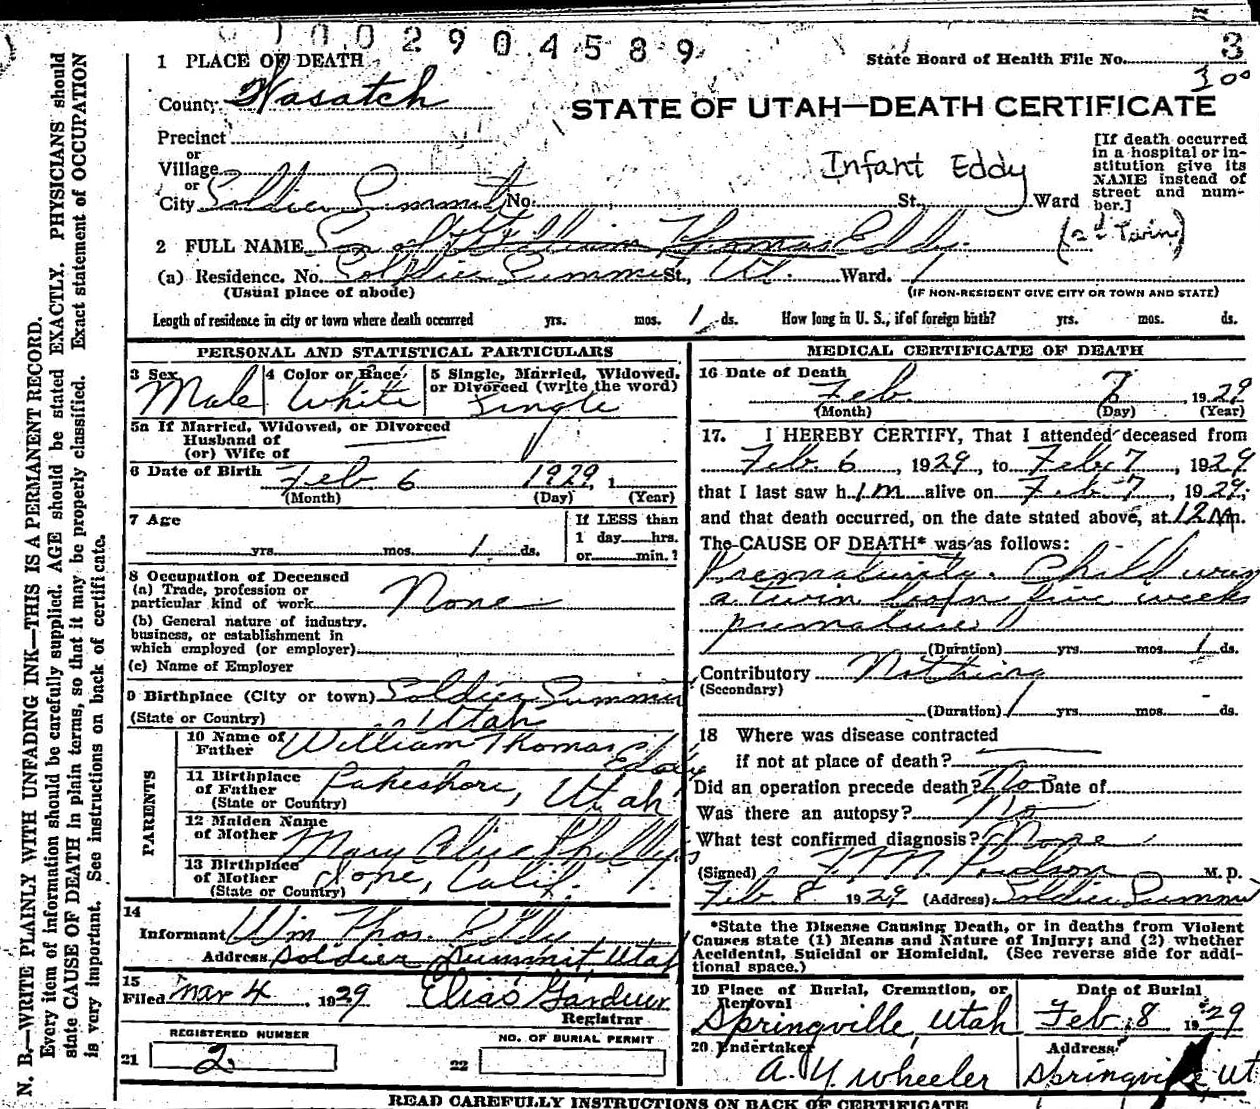 1002904589
State Board of Health File No. 3
300
1 PLACE OF DEATH
County Wasatch
STATE OF UTAH—DEATH CERTIFICATE
Precinct
or
Village
or
City Soldier Summit No. St., Ward
Infant Eddy
[If death occurred
in a hospital or in-
stitution give its
NAME instead of
street and num-
ber.]
2 FULL NAME Son of William Thomas Eddy.
(2d Twin)
(a) Residence. No. Soldier Summit St., Ut. Ward.
(Usual place of abode)
(IF NON-RESIDENT GIVE CITY OR TOWN AND STATE)
Length of residence in city or town where death occurred yrs. mos. 1 ds. How long in U. S., if of foreign birth? yrs. mos. ds.
PERSONAL AND STATISTICAL PARTICULARS
3 Sex
Male
4 Color or Race
White
5 Single, Married, Widowed,
or Divorced (write the word)
Single
5a If Married, Widowed, or Divorced
Husband of
(or) Wife of
6 Date of Birth Feb 6 1929
(Month) (Day) (Year)
7 Age
yrs. mos. 1 ds.
If LESS than
1 day hrs.
or min.?
8 Occupation of Deceased
(a) Trade, profession or
particular kind of work None
(b) General nature of industry,
business, or establishment in
which employed (or employer)
(c) Name of Employer
9 Birthplace (City or town) Soldier Summit
(State or Country) Utah
PARENTS
10 Name of
Father William Thomas Eddy
11 Birthplace
of Father Lakeshore, Utah
(State or Country)
12 Maiden Name
of Mother Mary Alice Phillips
13 Birthplace
of Mother Ione, Calif.
(State or Country)
14
Informant Wm Thos. Eddy
Address Soldier Summit Utah
15
Filed Mar 4, 1929 Elias Gardner
Registrar
REGISTERED NUMBER
21 2
NO. OF BURIAL PERMIT
22
MEDICAL CERTIFICATE OF DEATH
16 Date of Death
Feb. 7, 1929
(Month) (Day) (Year)
17. I HEREBY CERTIFY, That I attended deceased from
Feb. 6, 1929, to Feb 7, 1929
that I last saw him alive on Feb 7, 1929,
and that death occurred, on the date stated above, at 12 m.
The CAUSE OF DEATH* was as follows:
Prematurity. Child was
a twin born five weeks
premature
(Duration) yrs. mos. 1 ds.
Contributory Nothing
(Secondary)
(Duration) yrs. mos. ds.
18 Where was disease contracted
if not at place of death?
Did an operation precede death? No Date of
Was there an autopsy? No
What test confirmed diagnosis? None
(Signed) M. D.
Feb 8 1929 (Address) Soldier Summit
*State the Disease Causing Death, or in deaths from Violent
Causes state (1) Means and Nature of Injury; and (2) whether
Accidental, Suicidal or Homicidal. (See reverse side for addi-
tional space.)
19 Place of Burial, Cremation, or
Removal
Springville, Utah
Date of Burial
Feb 8 1929
20 Undertaker
A. Y. Wheeler
Address
Springville Ut
READ CAREFULLY INSTRUCTIONS ON BACK OF CERTIFICATE
N. B.—WRITE PLAINLY WITH UNFADING INK—THIS IS A PERMANENT RECORD.
Every item of information should be carefully supplied. AGE should be stated EXACTLY. PHYSICIANS should
state CAUSE OF DEATH in plain terms, so that it may be properly classified. Exact statement of OCCUPATION
is very important. See instructions on back of certificate.